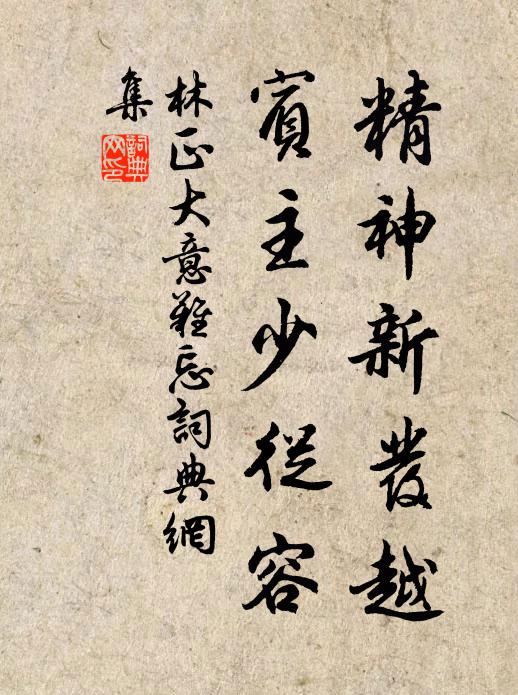 精神新發越
賓主少從容
林正大意難忘詞典網
集
詞典
网印